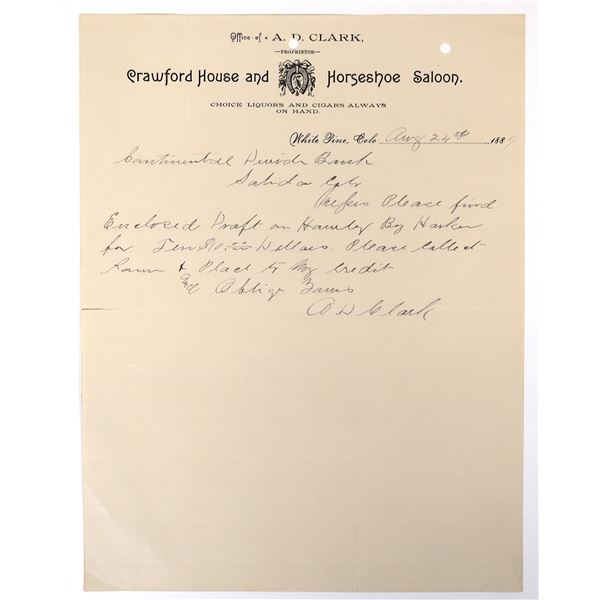 Office of A. D. CLARK,
PROPRIETOR
Crawford House and Horseshoe Saloon.
CHOICE LIQUORS AND CIGARS ALWAYS
ON HAND.
White Pine, Colo Aug 24th 1889
Continental Divide Bank
Salida Colo
Messrs Please find
Enclosed Draft on Hawley By Harker
for Ten $10.00 Dollars. Please collect
Same & Place to My Credit
And Oblige Yours
A D Clark